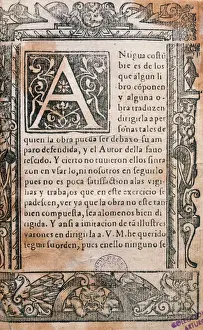 A Ntigua costũ
bre es de los
que algun li
bro cõponen
y alguna o
bra traduzen
dirigirla a per
sonas tales de
quien la obra pueda ser debaxo su am
paro defendida, y el Autor della fauo
rescido. Y cierto no tuuieron estos sinra
zon en vsar lo, ni nosotros en seguirlo
pues no es poca satisfaction a las vigi
lias y trabajos, que en este exercicio se
padescen, ver ya que la obra no este tan
bien compuesta, sea alomenos bien di
rigida. Y ansi a imitacion de tã illustres
varones en dirigirla a. V. M. he querido
seguir su orden, pues en ello ninguno se